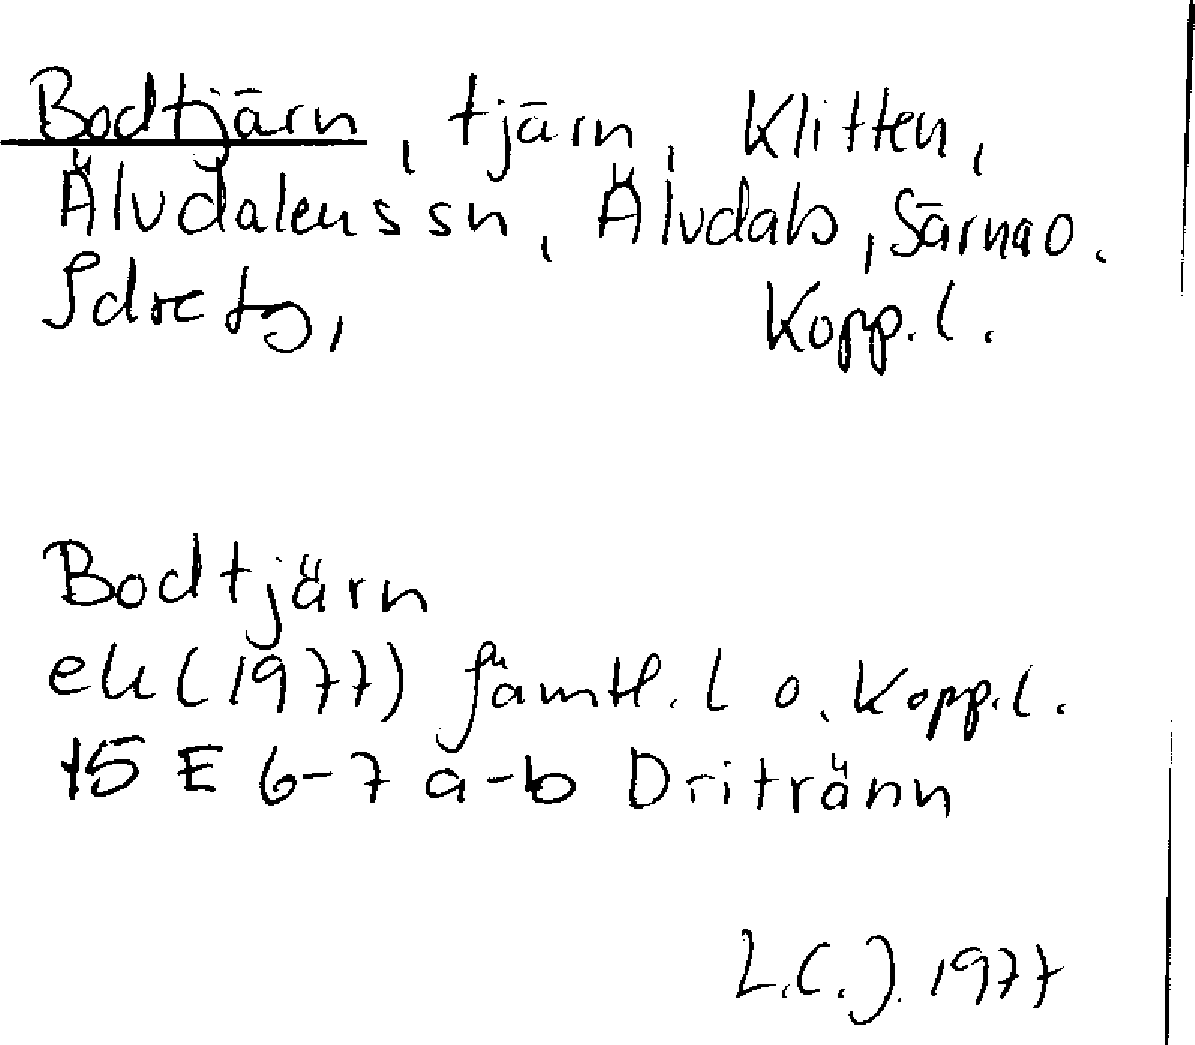 Bodtjärn, tjärn, Klitten,
Älvdalens sn, Älvdals, Särna o.
Idre tg, Kopp. l.
Bodtjärn
ek (1977) Jämtl. l o. Kopp. l.
15 E 6-7 a-b Dritränn
L.C.J. 1977